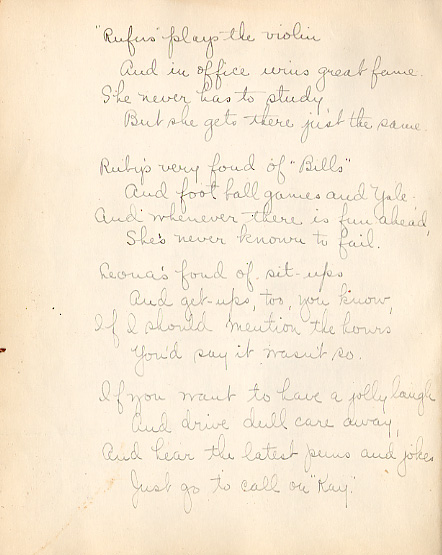 "Rufus" plays the violin
And in office wins great fame.
She never has to study
But she gets there just the same.
Ruby's very fond of "Bills"
And foot ball games and Yale.
And whenever there is fun ahead,
She's never known to fail.
Leona's fond of sit-ups
And get-ups, too, you know,
If I should mention the hours
You'd say it wasn't so.
If you want to have a jolly laugh
And drive dull care away,
And hear the latest puns and jokes
Just go to call on "Kay."